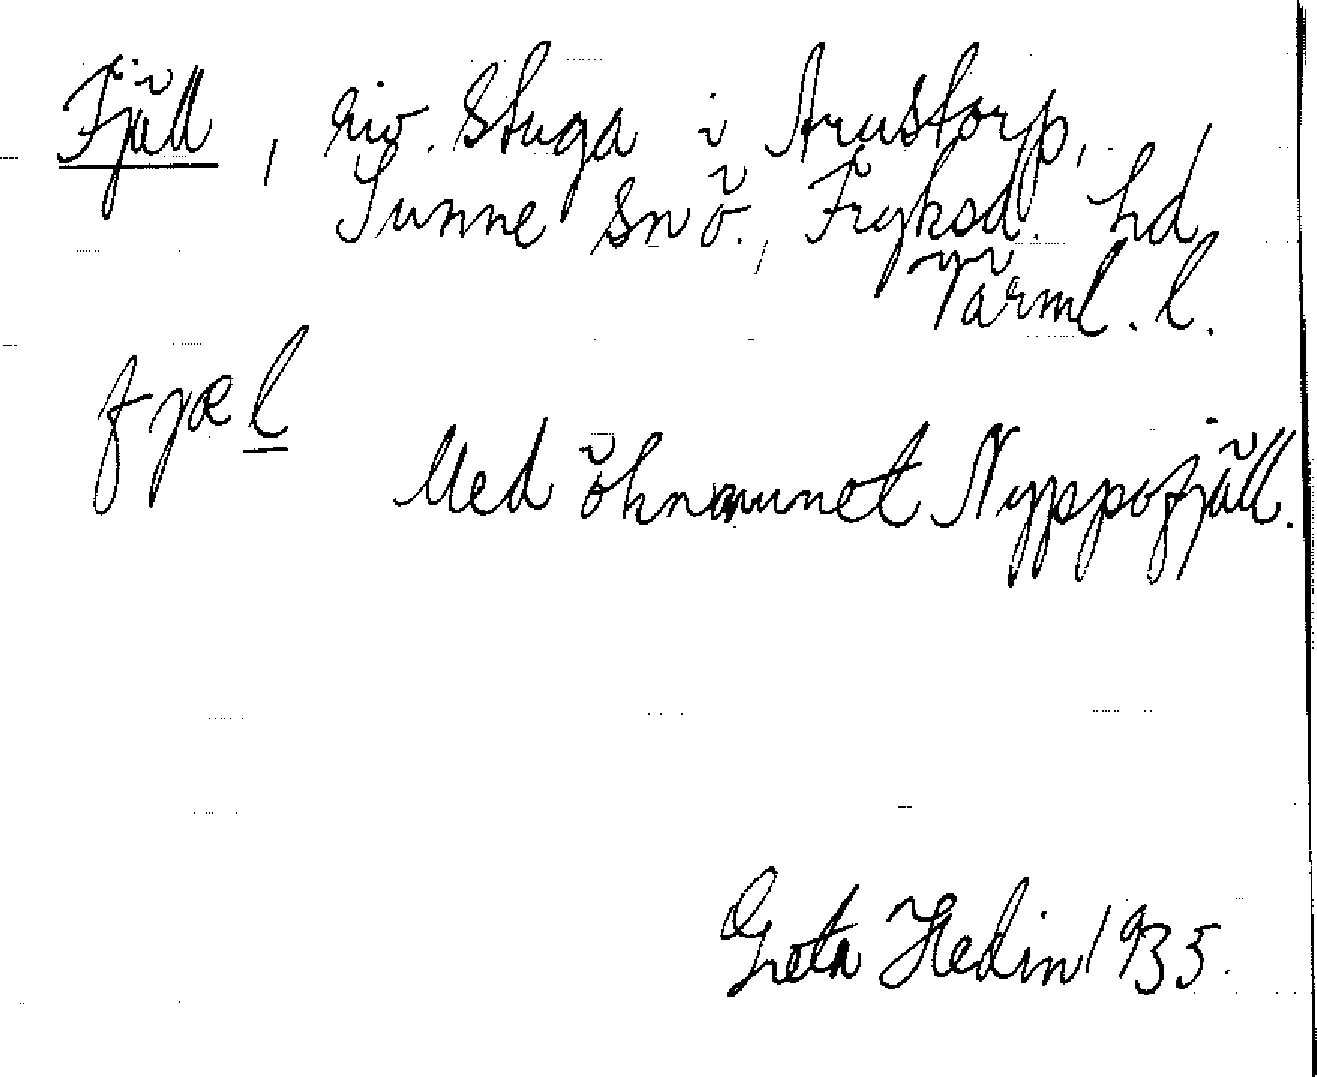 Fjäll, riv. stuga i Arustorp,
Sunne snö., Fryksd. hd
Värml. l.
fjæl
Med öknamnet Nyppofjäll.
Greta Hedin 1935.